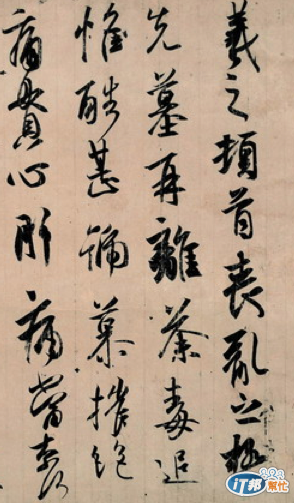 羲之頓首喪亂之極
先墓再離荼毒追
惟酷甚號慕摧絕
痛貫心肝痛當奈何
iT邦幫忙